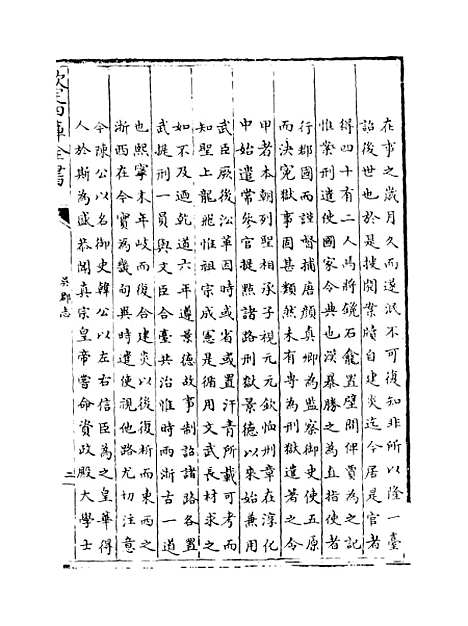 在事之歲月久而逆泝不可復知非所以隆一臺
詔後世也於是搜閱案牘自建炎迄今居是官者
得四十有二人焉將鑱石龕置壁間俾賈為之記
惟案刑遣使國家令典也漢暴勝之為直指使者
行郡國而誅督捕唐顏真卿為監察御史使五原
而決寃獄事固甚類然未有専為刑獄遣者之今
甲者本朝列聖相承子視元元欽恤刑章在淳化
中始遣常參官提㸃諸路刑獄景德以來始兼用
武臣厥後沿革因時或省或置汗青所載可考而
知聖上龍飛惟祖宗成憲是循用文武長材求之
如不及廼乾道六年遵景德故事制詔諸路各置
武提刑一員與文臣合臺共治惟時兩浙古一道
也熈寧末年岐而復合建炎以後復析而東西之
浙西在今實為畿句異時遣使視他路尤切注意
令陳公以名御史韓公以左右信臣為之皇華得
人於斯為盛恭聞真宗皇帝嘗命資政殿大學士
欽定四庫全書
吳郡志
三